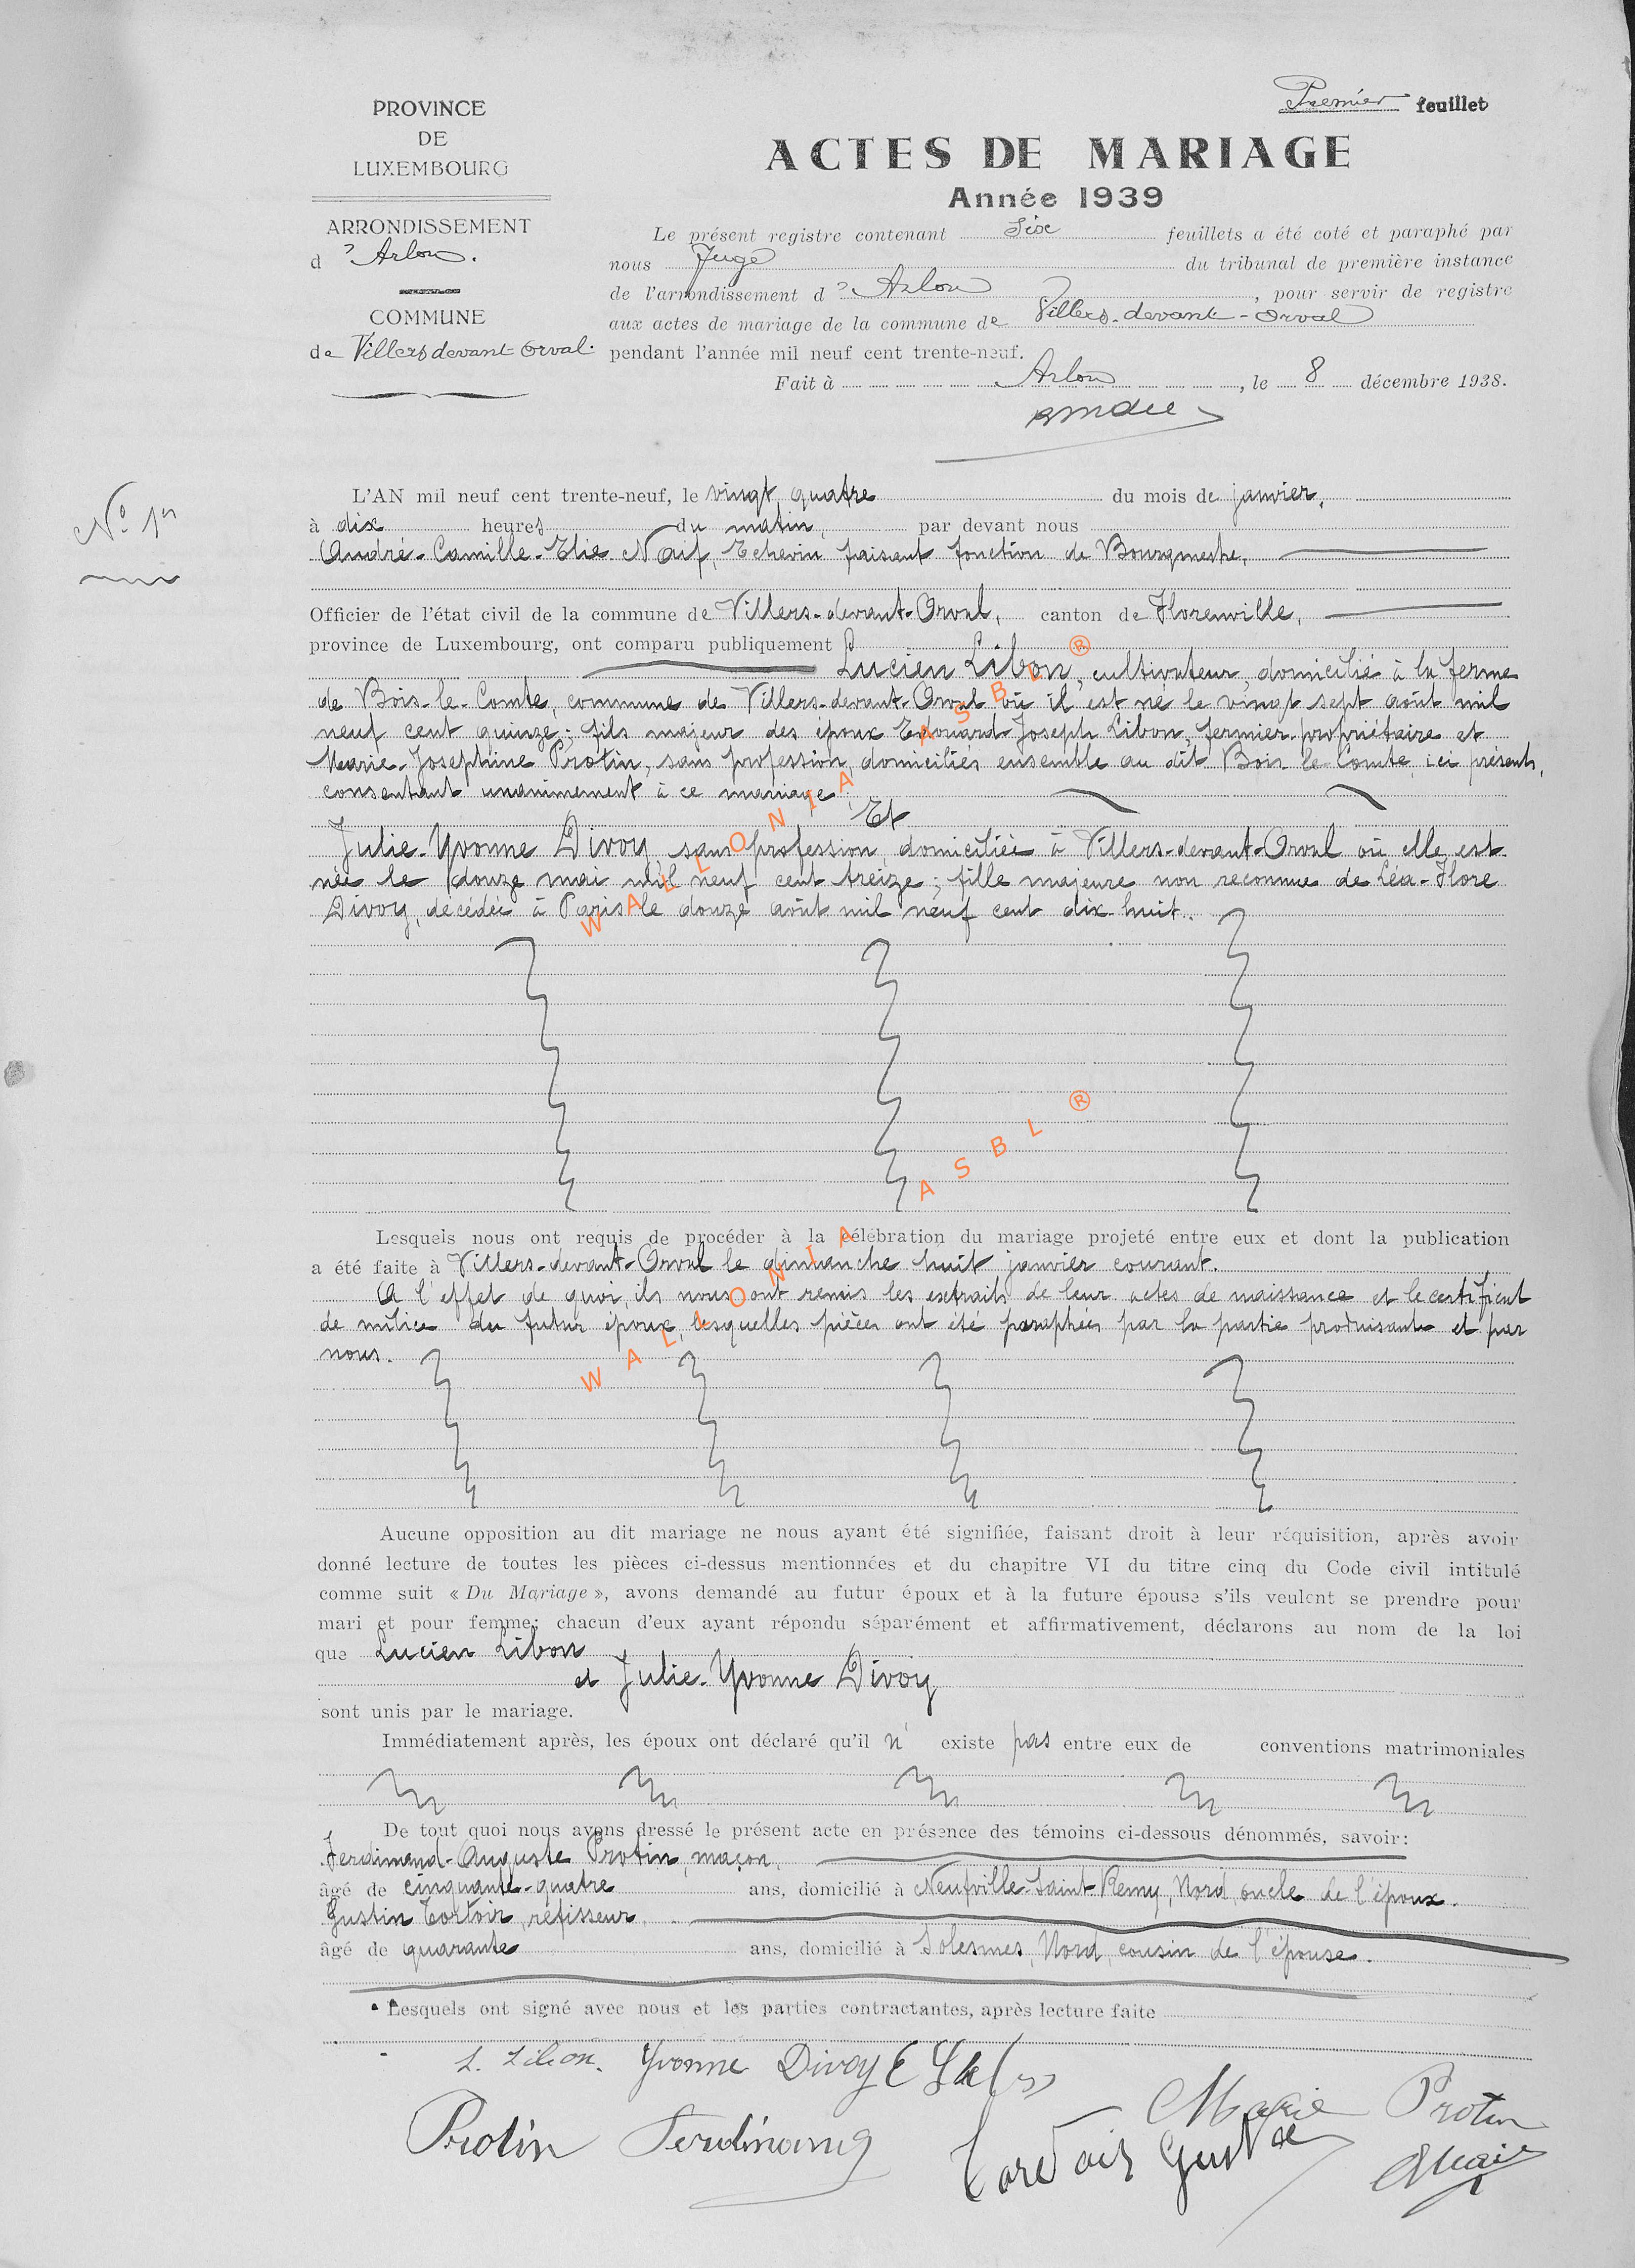 Premier feuillet
PROVINCE
DE
LUXEMBOURG
ARRONDISSEMENT
d'Arlon.
COMMUNE
de Villers devant Orval.
ACTES DE MARIAGE
Année 1939
Le présent registre contenant Six feuillets a été coté et paraphé par
nous Juge du tribunal de première instance
de l'arrondissement d'Arlon, pour servir de registre
aux actes de mariage de la commune de Villers-devant-Orval
pendant l'année mil neuf cent trente-neuf.
Fait à Arlon, le 8 décembre 1938.
N° 1
L'AN mil neuf cent trente-neuf, le vingt quatre du mois de janvier,
à dix heures du matin, par devant nous
André-Camille-Elie Naif, Echevin faisant fonction de Bourgmestre,
Officier de l'état civil de la commune de Villers-devant-Orval, canton de Florenville,
province de Luxembourg, ont comparu publiquement
Lucien Libon, cultivateur, domicilié à la ferme
de Bois-le-Comte, commune de Villers-devant-Orval où il est né le vingt sept août mil
neuf cent quinze; fils majeur des époux Edouard-Joseph Libon, fermier-propriétaire et
Marie-Josephine Protin, sans profession, domiciliés ensemble au dit Bois le Comte, ici présents,
consentant unanimement à ce mariage.
Et
Julie-Yvonne Divoy, sans profession, domiciliée à Villers-devant-Orval où elle est
née le douze mai mil neuf cent treize; fille majeure non reconnue de Léa-Flore
Divoy, décédée à Paris le douze août mil neuf cent dix-huit.
WALLONIA ASBL ®
Lesquels nous ont requis de procéder à la célébration du mariage projeté entre eux et dont la publication
a été faite à Villers-devant-Orval le dimanche huit janvier courant.
A l'effet de quoi, ils nous ont remis les extraits de leur actes de naissance et le certificat
de milice du futur époux, lesquelles pièces ont été paraphées par la partie produisante et par
nous.
WALLONIA ASBL ®
Aucune opposition au dit mariage ne nous ayant été signifiée, faisant droit à leur réquisition, après avoir
donné lecture de toutes les pièces ci-dessus mentionnées et du chapitre VI du titre cinq du Code civil intitulé
comme suit « Du Mariage », avons demandé au futur époux et à la future épouse s'ils veulent se prendre pour
mari et pour femme; chacun d'eux ayant répondu séparément et affirmativement, déclarons au nom de la loi
que Lucien Libon
et Julie-Yvonne Divoy
sont unis par le mariage.
Immédiatement après, les époux ont déclaré qu'il n'existe pas entre eux de conventions matrimoniales
De tout quoi nous avons dressé le présent acte en présence des témoins ci-dessous dénommés, savoir:
Ferdinand-Auguste Protin, maçon,
âgé de cinquante-quatre ans, domicilié à Neufville-Saint-Remy, Nord, oncle de l'époux.
Gustin Tortoir,
âgé de quarante ans, domicilié à Solesmes, Nord, cousin de l'épouse.
Lesquels ont signé avec nous et les parties contractantes, après lecture faite
L. Libon. Yvonne Divoy
Marie Protin
Protin Ferdinand